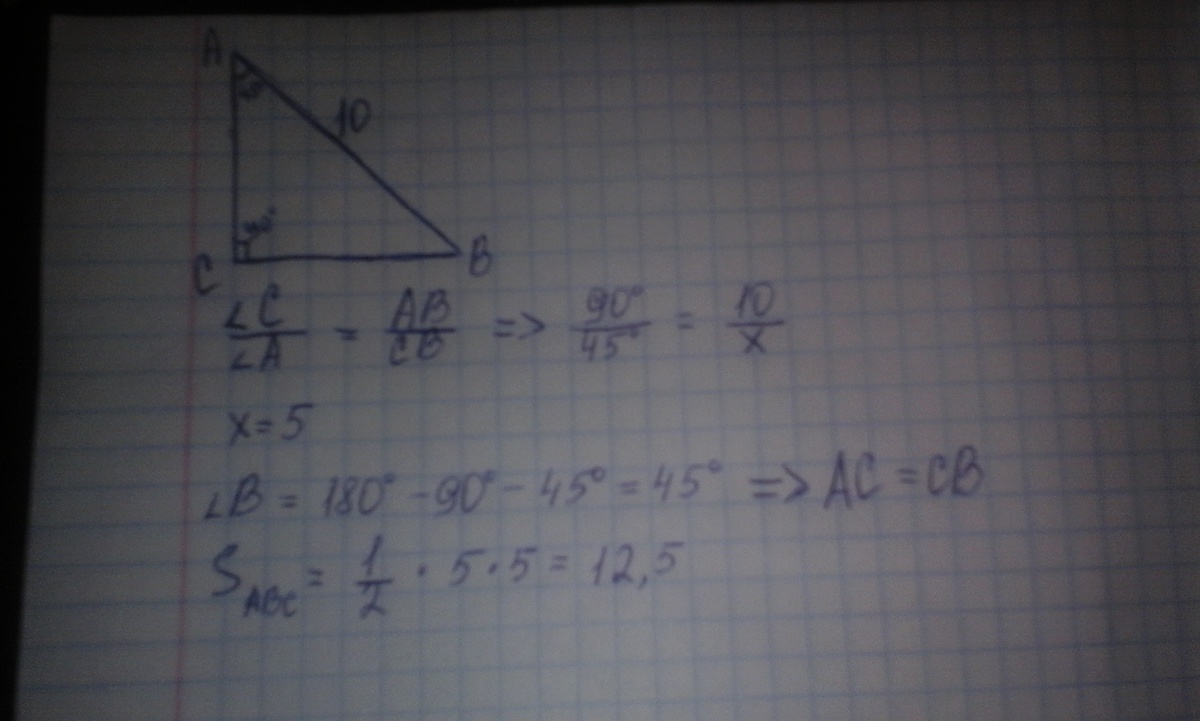 A
10
90°
C
B
∠C/∠A = AB/CB => 90°/45° = 10/x
x = 5
∠B = 180° - 90° - 45° = 45° => AC = CB
S ABC = 1/2 · 5 · 5 = 12,5